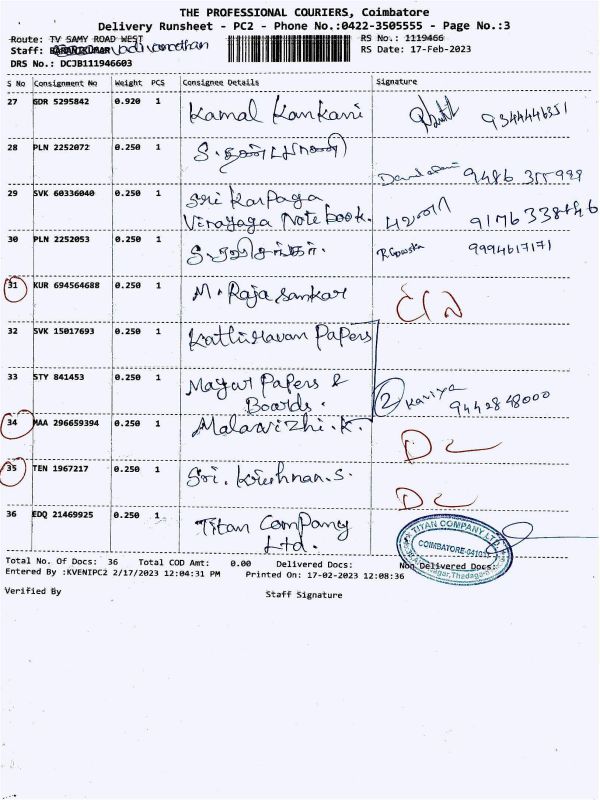 THE PROFESSIONAL COURIERS, Coimbatore
Delivery Runsheet - PC2 - Phone No.:0422-3505555 - Page No.:3
Route: TV SAMY ROAD WEST RS No.: 1119466
Staff: RS Date: 17-Feb-2023
DRS No.: DCJB111946603
S No Consignment No Weight PCS Consignee Details Signature
27 GDR 5295842 0.920 1 Kamal Kankani 9344446351
28 PLN 2252072 0.250 1 9486 355999
29 SVK 60336040 0.250 1 Sri Karpaga
Vinayaga Note book. 9176338846
30 PLN 2252053 0.250 1 S. ரவிசங்கர். 9994617171
31 KUR 694564688 0.250 1 M. Raja sankar
32 SVK 15017693 0.250 1 Kathiravan Papers
33 STY 841453 0.250 1 Mayur Papers &
Boards. 2 Kaviya 9442848000
34 MAA 296659394 0.250 1 Malarvizhi.K. DL
35 TEN 1967217 0.250 1 Sri. Krishnan.S. DL
36 EDQ 21469925 0.250 1 Titan Company
Ltd. TITAN COMPANY LTD.
COIMBATORE
Total No. Of Docs: 36 Total COD Amt: 0.00 Delivered Docs: Non Delivered Docs:
Entered By :KVENIPC2 2/17/2023 12:04:31 PM Printed On: 17-02-2023 12:08:36
Verified By Staff Signature